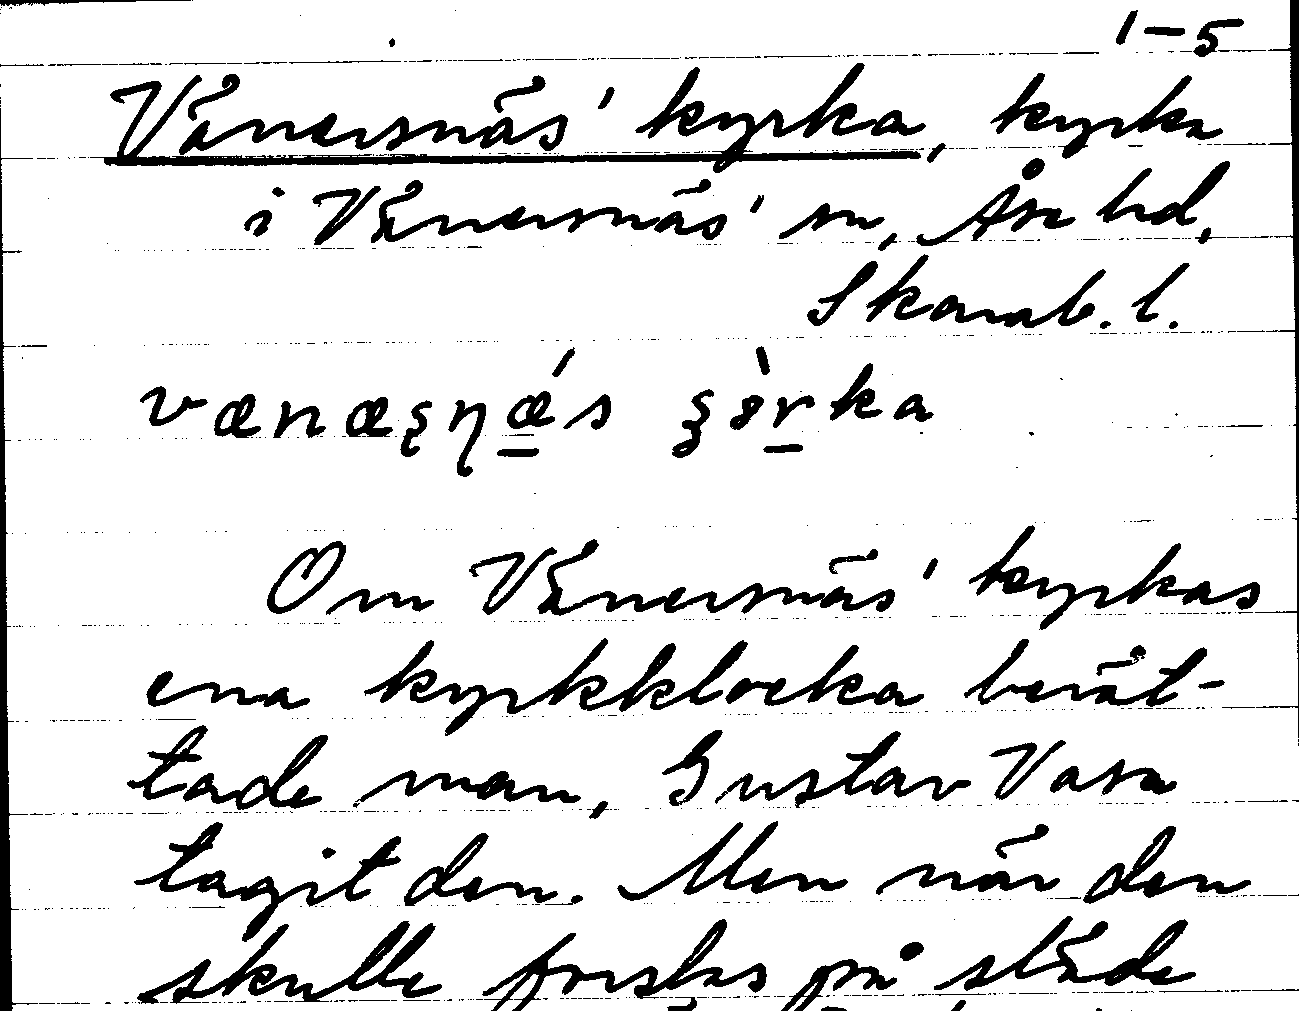 1-5
Vänersnäs' kyrka, kyrka
i Vänersnäs' sn, Åse hd,
Skarab. l.
vænæʂɳǽ̲s ʂɵ̀r̲ka
Om Vänersnäs' kyrkas
ena kyrkklocka berät-
tade man, Gustav Vasa
tagit den. Men när den
skulle forslas på släde